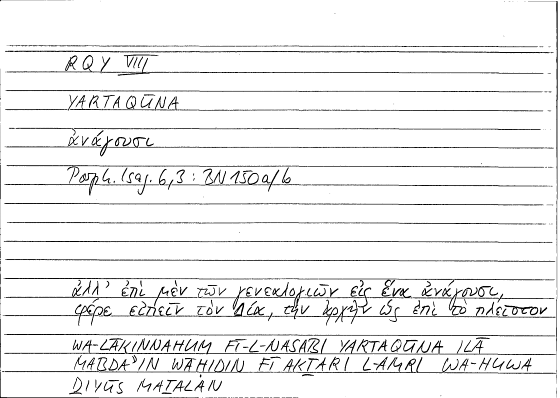 RQY VIII
YARTAQŪNA
ἀνάγουσι
Porph. Isag. 6,3 : BN 150a/b
ἀλλ' ἐπὶ μὲν τῶν γενεαλογιῶν εἰς ἕνα ἀνάγουσι,
φέρε εἰπεῖν τὸν Δία, τὴν ἀρχὴν ὡς ἐπὶ τὸ πλεῖστον
WA-LĀKINNAHUM FĪ-L-NASABI YARTAQŪNA ILĀ
MABDAʾIN WĀḤIDIN FĪ AKṮARI L-AMRI WA-HUWA
ḎIYŪS MAṮALAN